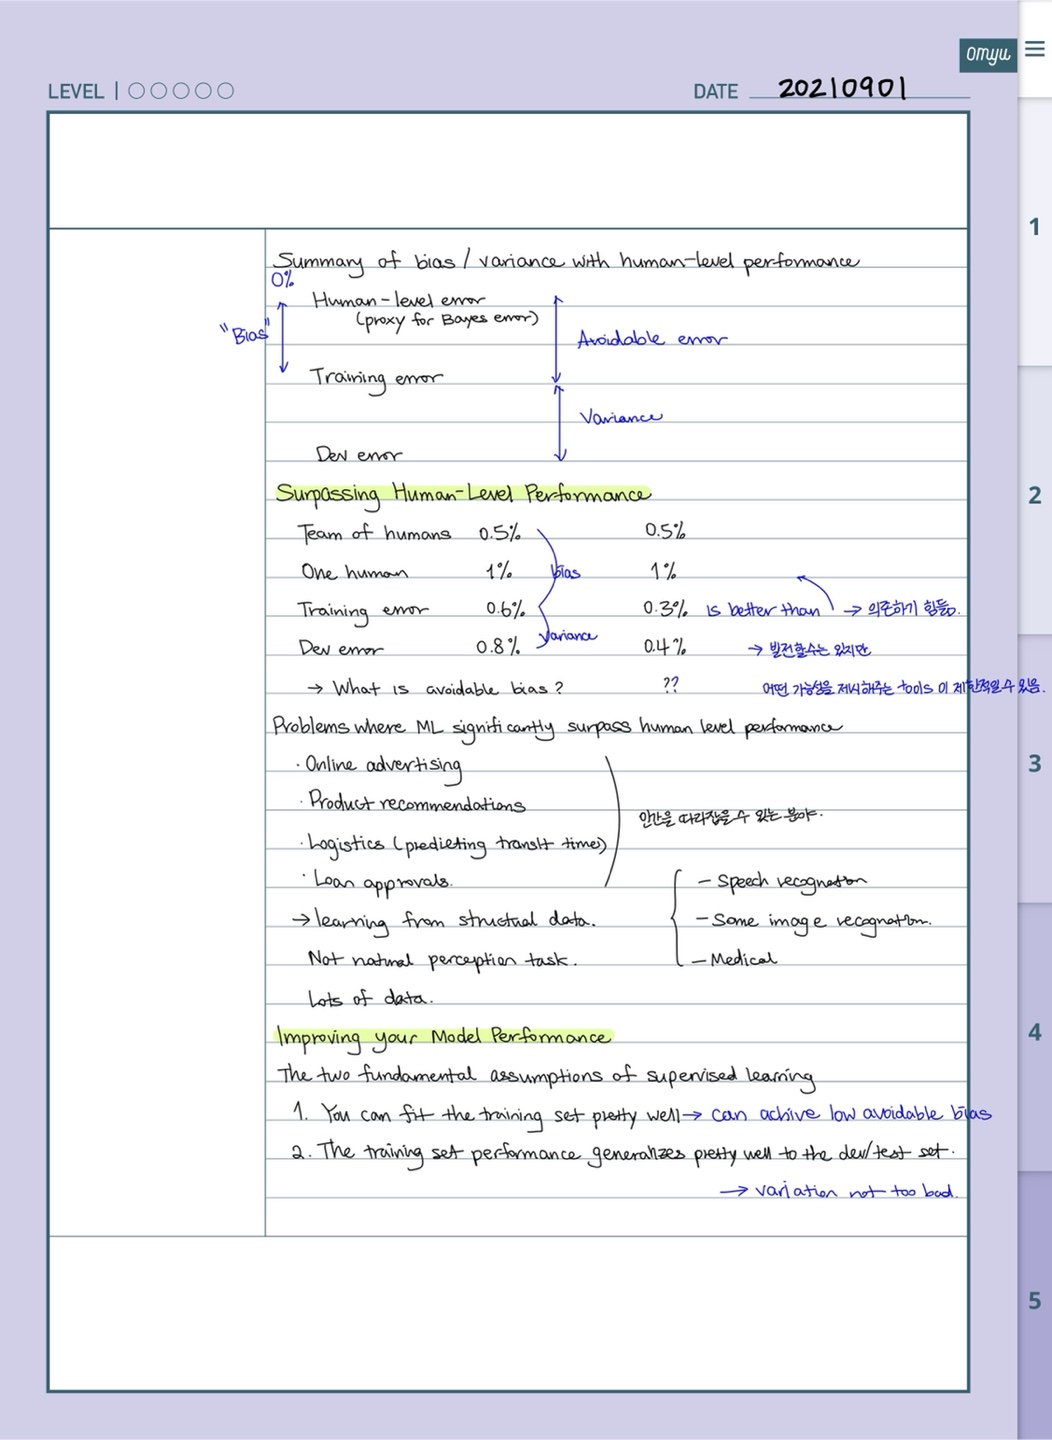 omyu
LEVEL | ○○○○○
DATE 20210901
1
2
3
4
5
Summary of bias / variance with human-level performance
0%
Human-level error
(proxy for Bayes error)
"Bias"
Avoidable error
Training error
Variance
Dev error
Surpassing Human-Level Performance
Team of humans 0.5% 0.5%
One human 1% bias 1%
Training error 0.6% 0.3% is better than → 의존하기 힘듦.
Dev error 0.8% variance 0.4% → 발전할수는 있지만
→ What is avoidable bias? ?? 어떤 가능성을 제시해주는 tools 이 제한적일 수 있음.
Problems where ML significantly surpass human level performance
· Online advertising
· Product recommendations
인간을 따라잡을 수 있는 분야.
· Logistics (predicting transit time)
· Loan approvals.
- Speech recognation
→ learning from structual data.
- Some image recognation.
Not natural perception task.
- Medical
Lots of data.
Improving your Model Performance
The two fundamental assumptions of supervised learning
1. You can fit the training set pretty well → can achive low avoidable bias
2. The training set performance generalizes pretty well to the dev/test set.
→ variation not too bad.